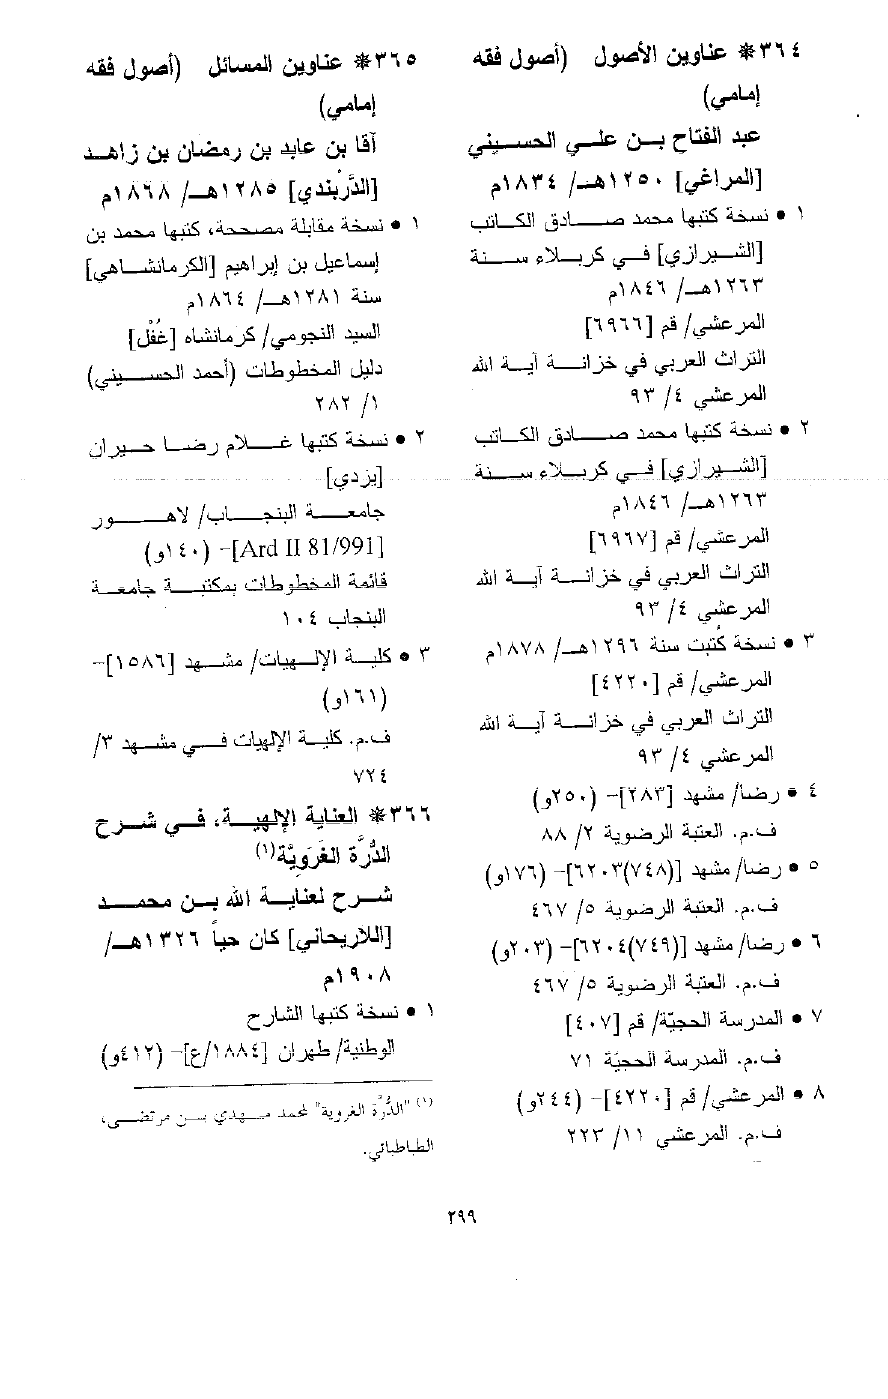 ٣٦٤* عناوين الأصول (أصول فقه
إمامي)
عبد الفتاح بن علي الحسيني
[المراغي] ١٢٥٠هـ/ ١٨٣٤م
١ • نسخة كتبها محمد صادق الكاتب
[الشيرازي] في كربلاء سنة
١٢٦٣هـ/ ١٨٤٦م
المرعشي/ قم [٦٩٦٦]
التراث العربي في خزانة آية الله
المرعشي ٤/ ٩٣
٢ • نسخة كتبها محمد صادق الكاتب
[الشيرازي] في كربلاء سنة
١٢٦٣هـ/ ١٨٤٦م
المرعشي/ قم [٦٩٦٧]
التراث العربي في خزانة آية الله
المرعشي ٤/ ٩٣
٣ • نسخة كُتبت سنة ١٢٩٦هـ/ ١٨٧٨م
المرعشي/ قم [٤٢٢٠]
التراث العربي في خزانة آية الله
المرعشي ٤/ ٩٣
٤ • رضا/ مشهد [٢٨٣]- (٢٥٠و)
ف.م. العتبة الرضوية ٢/ ٨٨
٥ • رضا/ مشهد [(٧٤٨)٦٢٠٣]- (١٧٦و)
ف.م. العتبة الرضوية ٥/ ٤٦٧
٦ • رضا/ مشهد [(٧٤٩)٦٢٠٤]- (٢٠٣و)
ف.م. العتبة الرضوية ٥/ ٤٦٧
٧ • المدرسة الحجيّة/ قم [٤٠٧]
ف.م. المدرسة الحجيّة ٧١
٨ • المرعشي/ قم [٤٢٢٠]- (٢٤٤و)
ف.م. المرعشي ١١/ ٢٢٣
٣٦٥* عناوين المسائل (أصول فقه
إمامي)
آقا بن عابد بن رمضان بن زاهد
[الدَّرْبندي] ١٢٨٥هـ/ ١٨٦٨م
١ • نسخة مقابلة مصححة، كتبها محمد بن
إسماعيل بن إبراهيم [الكرمانشاهي]
سنة ١٢٨١هـ/ ١٨٦٤م
السيد النجومي/ كرمانشاه [غُفْل]
دليل المخطوطات (أحمد الحسيني)
١/ ٢٨٢
٢ • نسخة كتبها غلام رضا حيران
[يزدي]
جامعة البنجاب/ لاهور
[Ard II 81/991]- (١٤٠و)
قائمة المخطوطات بمكتبة جامعة
البنجاب ١٠٤
٣ • كلية الإلهيات/ مشهد [١٥٨٦]-
(١٦١و)
ف.م. كلية الإلهيات في مشهد ٣/
٧٢٤
٣٦٦* العناية الإلهية، في شرح
الدُّرَّة الغَرَوِيَّة(١)
شرح لعناية الله بن محمد
[اللاريحاني] كان حياً ١٣٢٦هـ/
١٩٠٨م
١ • نسخة كتبها الشارح
الوطنية/ طهران [١٨٨٤/ع]- (٤١٢و)
(١) "الدُّرَّة الغروية" لمحمد مهدي بن مرتضى،
الطباطبائي.
٢٩٩